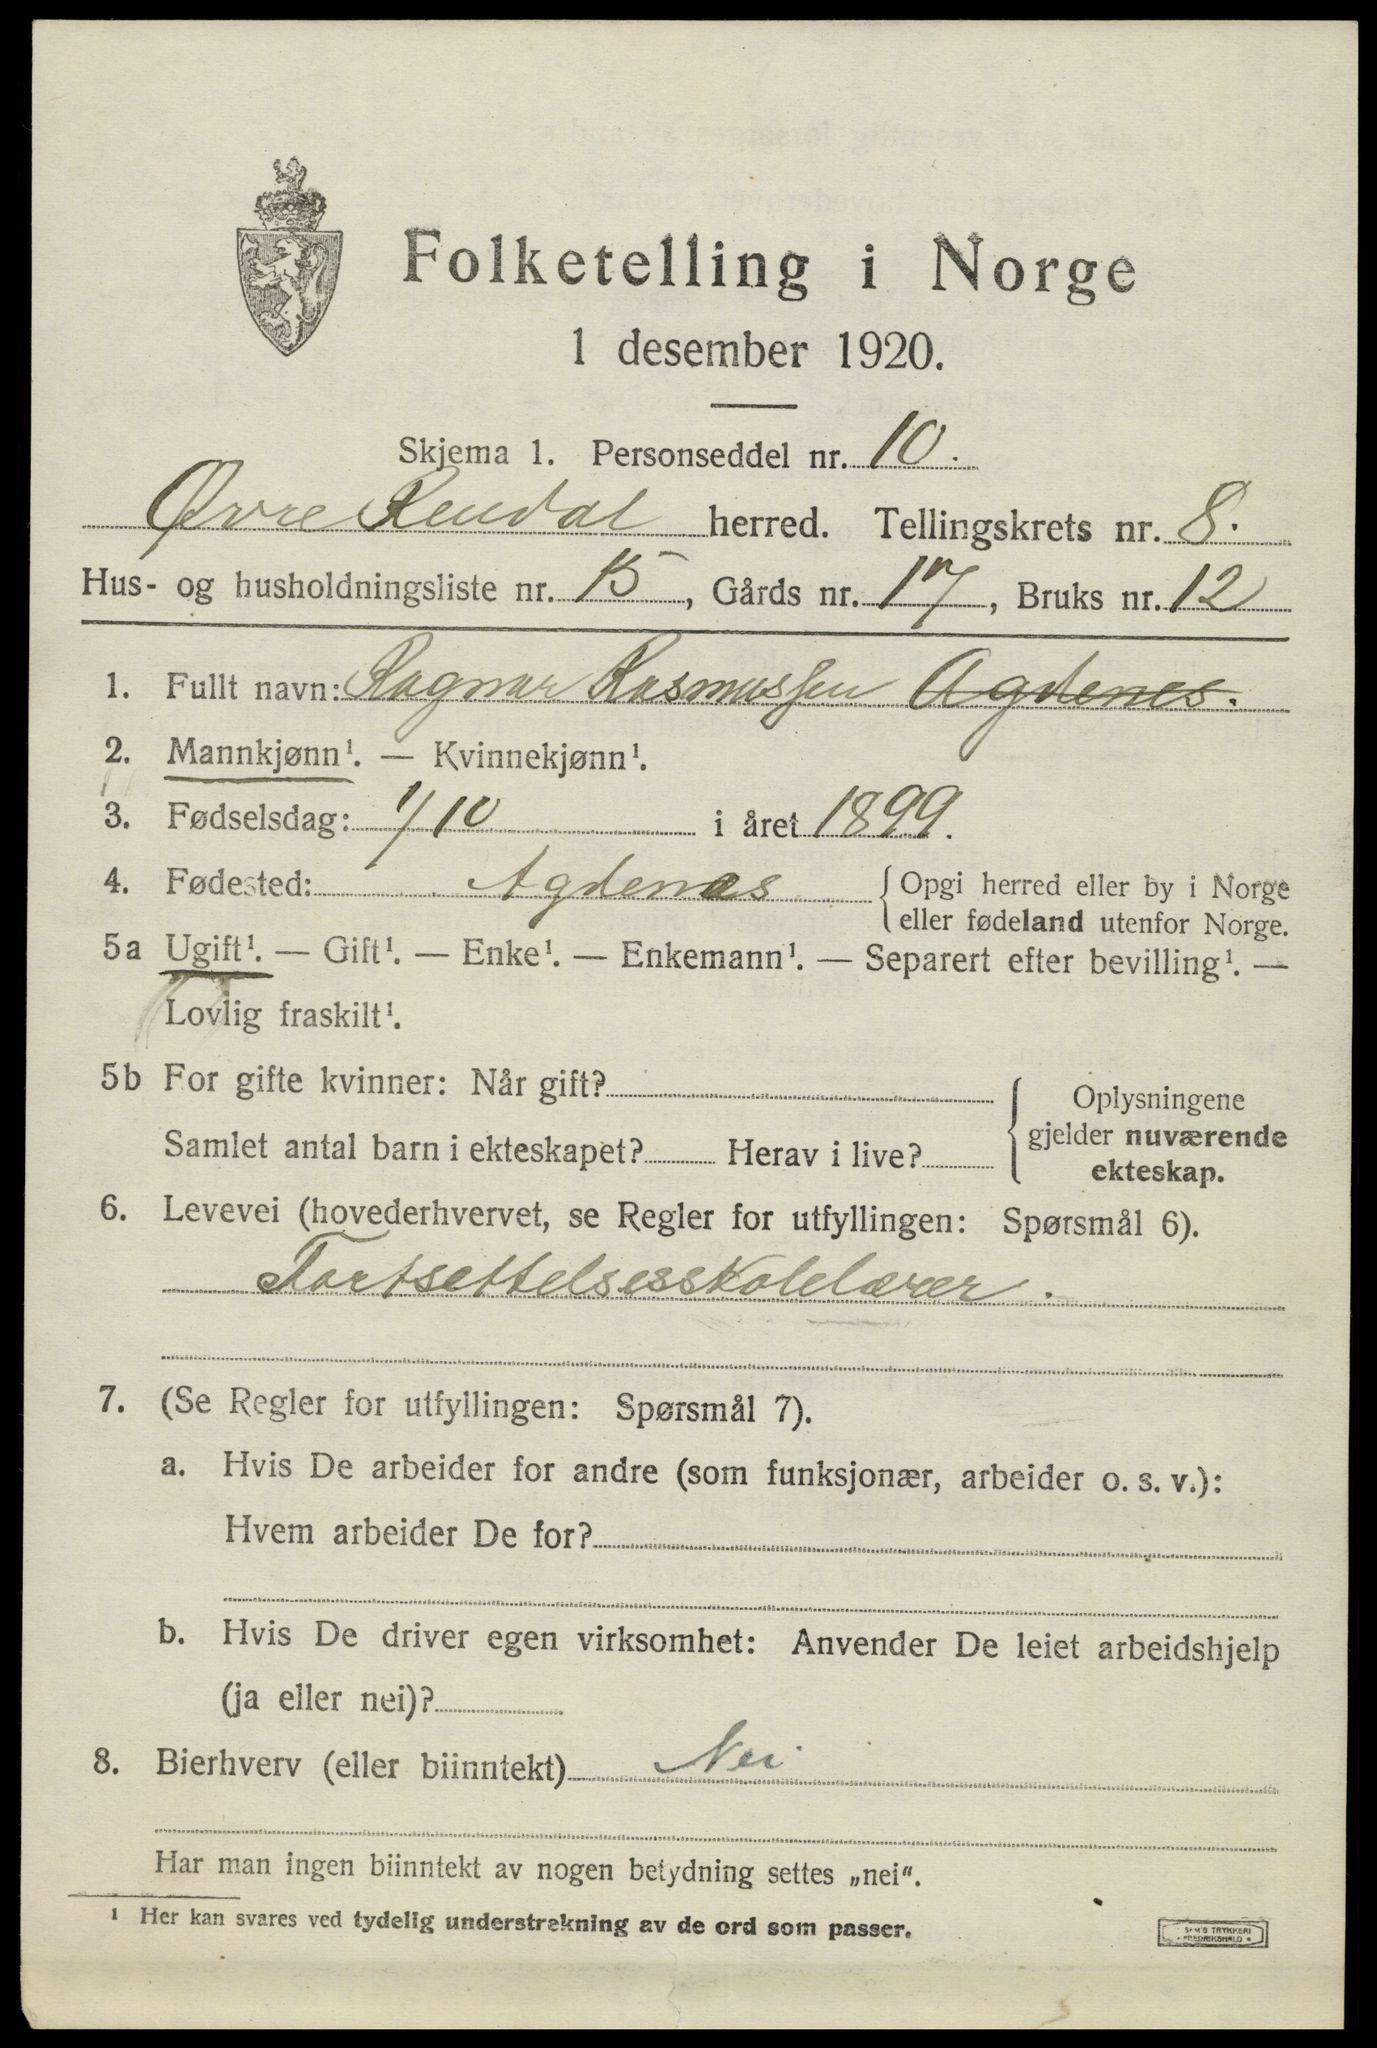 Folketelling i Norge
1 desember 1920.
Skjema 1. Personseddel nr. 10.
Øvre Rendal herred. Tellingskrets nr. 8.
Hus- og husholdningsliste nr. 15, Gårds nr. 17, Bruks nr. 12
1. Fullt navn: Ragnar Rasmussen Agdenes.
2. Mannkjønn¹. — Kvinnekjønn¹.
3. Fødselsdag: 1/10 i året 1899.
4. Fødested: Agdenes {Opgi herred eller by i Norge
eller fødeland utenfor Norge.
5a Ugift¹. — Gift¹. — Enke¹. — Enkemann¹. — Separert efter bevilling¹. —
Lovlig fraskilt¹.
5b For gifte kvinner: Når gift?
Samlet antal barn i ekteskapet? Herav i live?
Oplysningene
gjelder nuværende
ekteskap.
6. Levevei (hovederhvervet, se Regler for utfyllingen: Spørsmål 6).
Fortsettelsesskolelærer.
7. (Se Regler for utfyllingen: Spørsmål 7).
a. Hvis De arbeider for andre (som funksjonær, arbeider o. s. v.):
Hvem arbeider De for?
b. Hvis De driver egen virksomhet: Anvender De leiet arbeidshjelp
(ja eller nei)?
8. Bierhverv (eller biinntekt) Nei
Har man ingen biinntekt av nogen betydning settes „nei“.
¹ Her kan svares ved tydelig understrekning av de ord som passer.
SEM'S TRYKKERI
• FREDRIKSHALD •